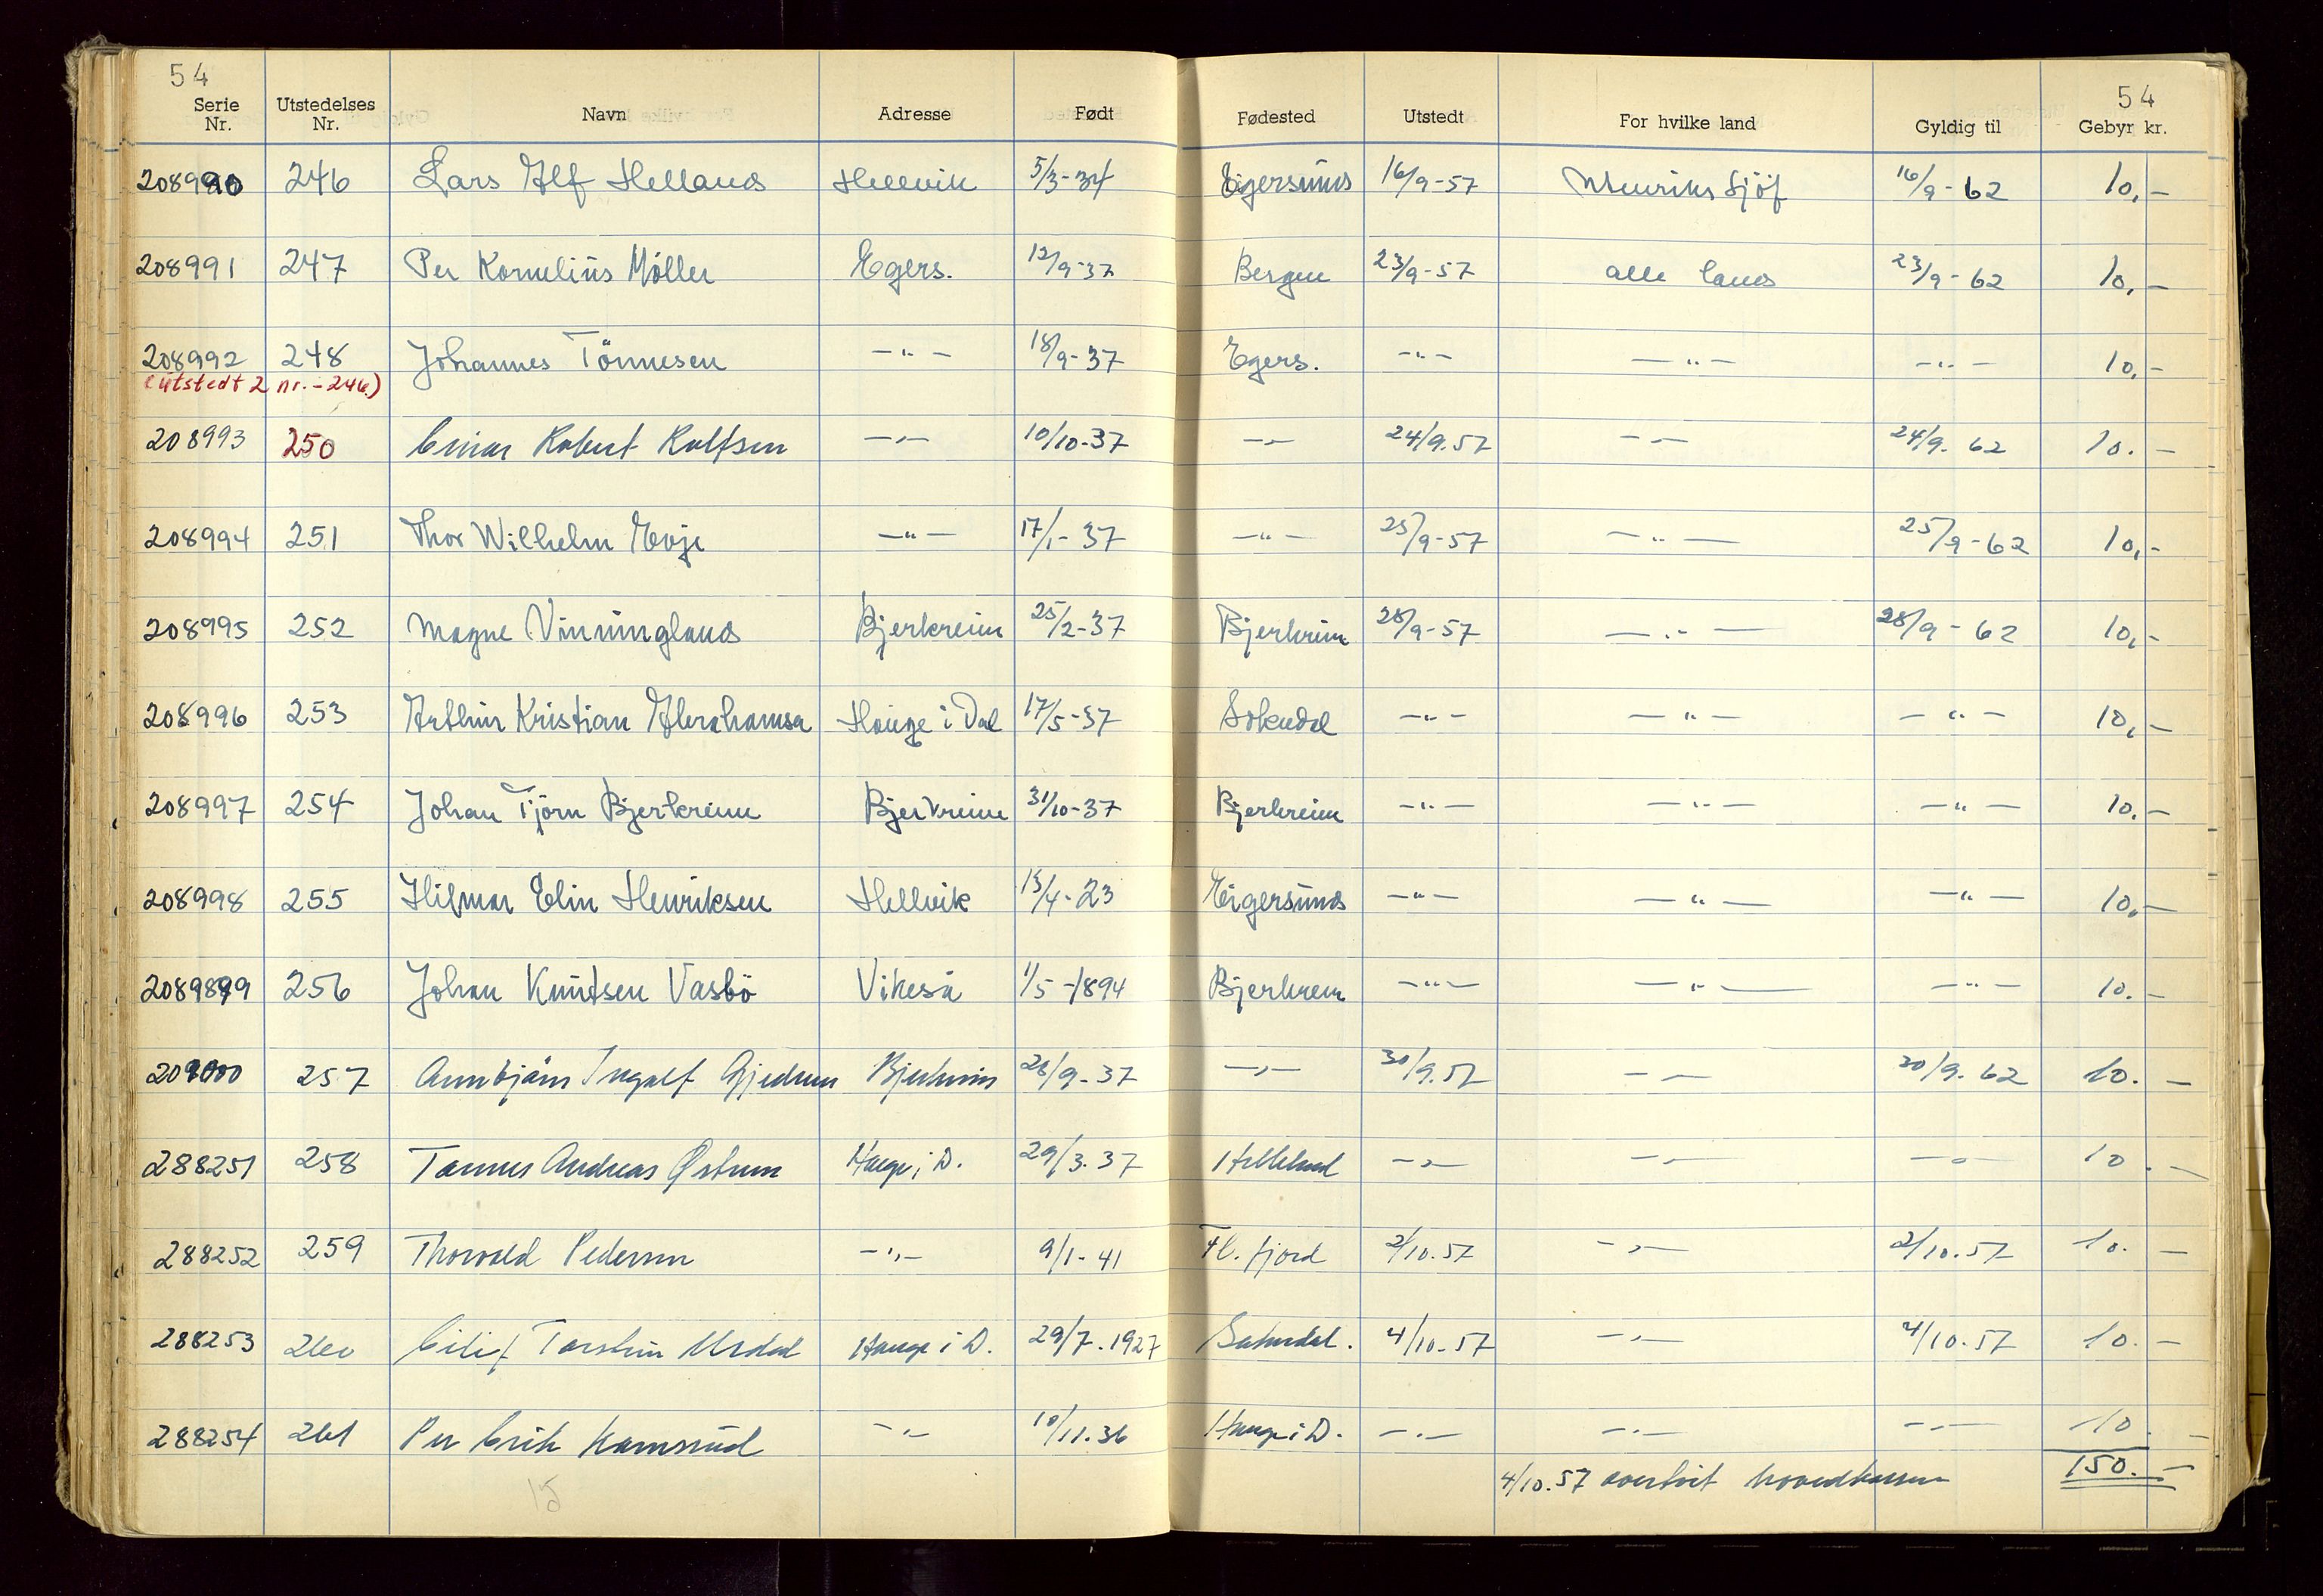 54
54
Serie Nr. Utstedelses Nr. Navn Adresse Født Fødested Utstedt For hvilke land Gyldig til Gebyr kr.
208990 246 Lars Alf Helland Hellvik 5/3-34 Eigersund 16/9-57 16/9-62 10,-
208991 247 Per Kornelius Møller Egers. 12/9-37 Bergen 23/9-57 alle land 23/9-62 10,-
208992 248 Johannes Tønnesen -"- 18/9-37 Egers. -"- -"- -"- 10,-
(utstedt 2 nr. - 246)
208993 250 Einar Robert Rolfsen -"- 10/10-37 -"- 24/9.57 -"- 24/9. 62 10.-
208994 251 Thor Wilhelm Evje -"- 17/1-37 -"- 25/9-57 -"- 25/9-62 10,-
208995 252 Magne Vinningland Bjerkreim 25/2-37 Bjerkreim 28/9-57 -"- 28/9-62 10,-
208996 253 Arthur Kristian Abrahamsen Hauge i Dal 17/5-37 Sokndal -"- -"- -"- 10,-
208997 254 Johan Tjörn Bjerkreim Bjerkreim 31/10-37 Bjerkreim -"- -"- -"- 10.-
208998 255 Hilmar Elin Henriksen Hellvik 13/4-23 Eigersund -"- -"- -"- 10,-
2089899 256 Johan Knudsen Vasbö Vikeså 1/5-1894 Bjerkreim -"- -"- -"- 10.-
209000 257 Arnbjørn Ingolf Gjedrem Bjerkreim 28/9-37 -"- 30/9.57 -"- 30/9.62 10.-
288251 258 Tannes Andreas Østrem Hauge i D. 29/3.37 Helleland -"- -"- -"- 10.-
288252 259 Thorvald Pedersen -"- 9/1-41 Fl. fjord 2/10.57 -"- 2/10.57 10.-
288253 260 Eilif Torstein Urdal Hauge i D. 29/7.1927 Sokndal. 4/10.57 -"- 4/10.57 10.-
288254 261 Per Erik Hamsrud -"- 10/11.36 Hauge i D. -"- -"- -"- 10.-
15 4/10.57 overført hovedkassen 150.-